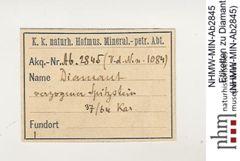 K. k. naturh. Hofmus. Mineral.-petr. Abt.
Akq.-Nr. Ab. 2845 (I.d. Nro. 1084)
Name Diamant
verzogener Spitzstein
37/64 Kar
Fundort
NHMW-MIN-Ab2845
Etiketten zu Diamant
NHMW-MIN-Ab2845
nhm
naturhistorisches
museum